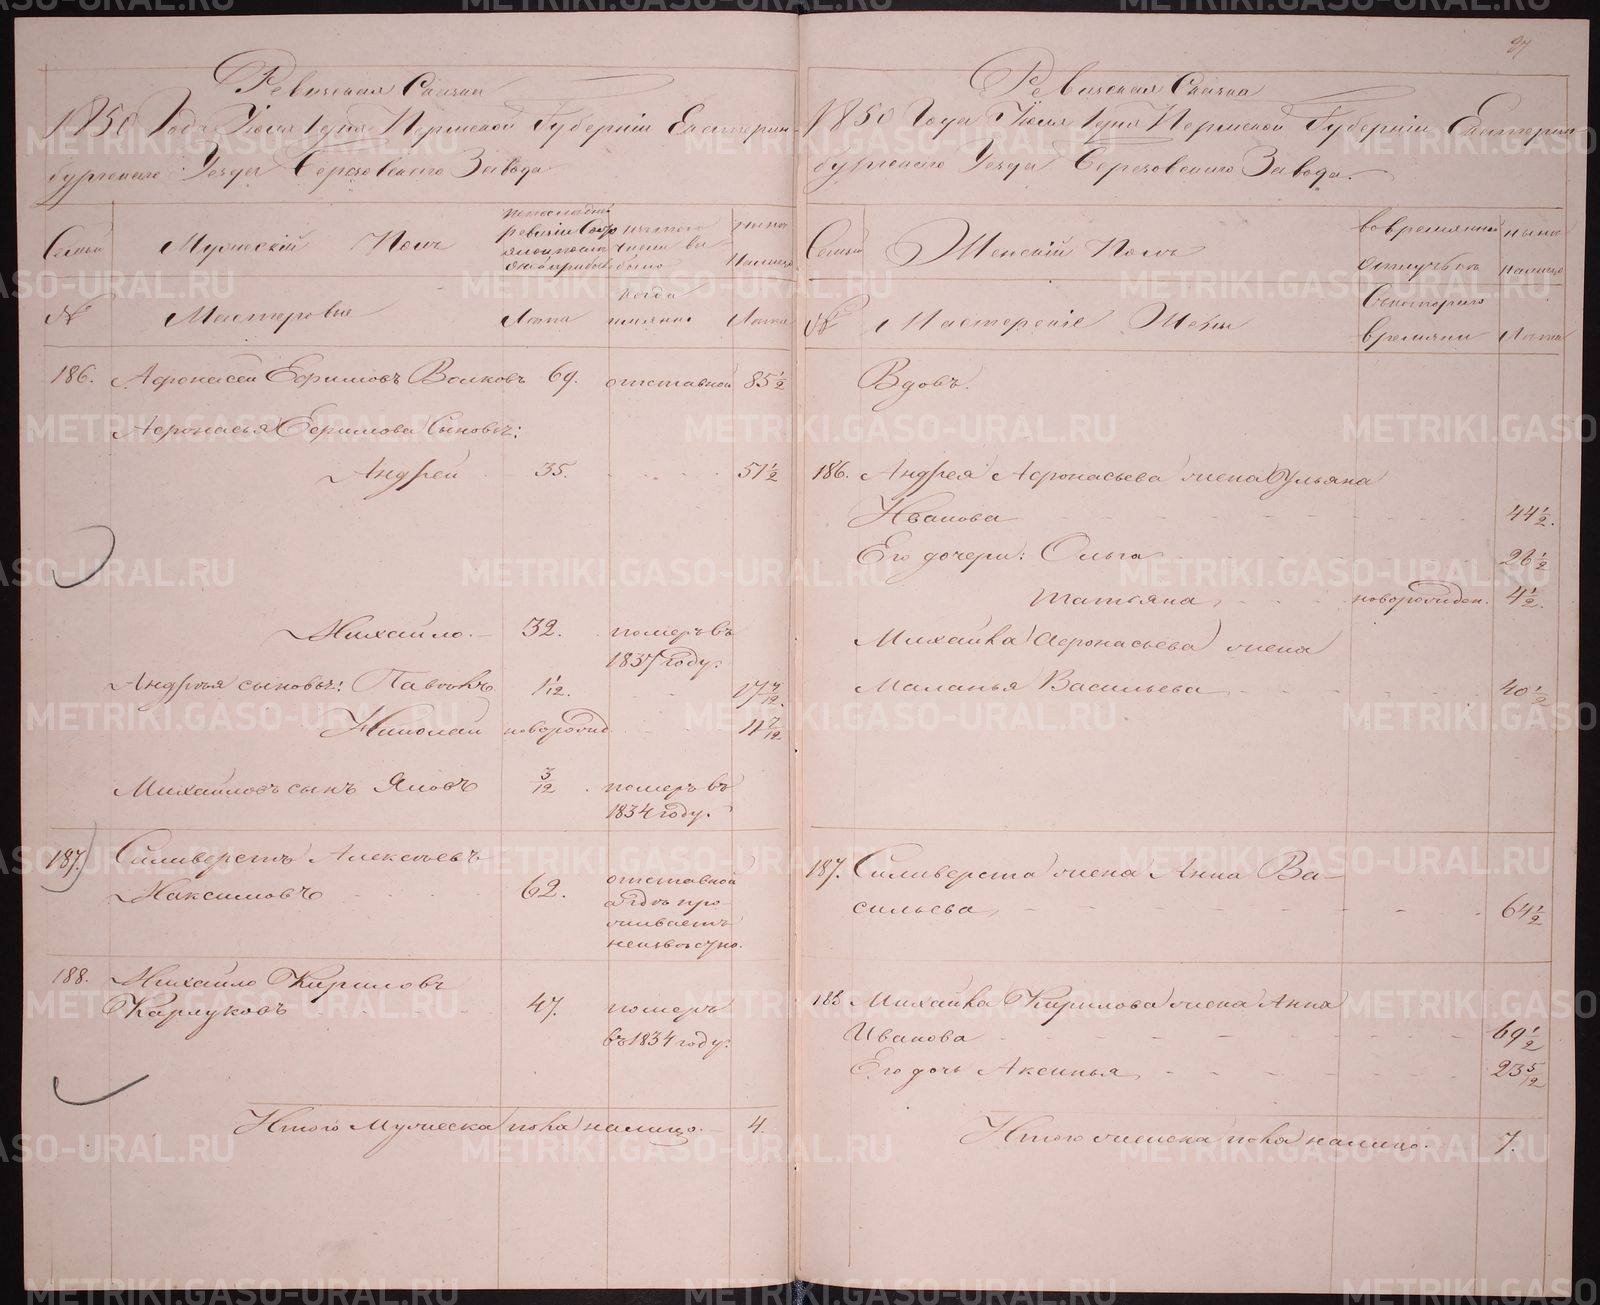 Ревизская Сказка
1850 Года Июля 1 дня Пермской Губерніи Екатерин-
бургскаго Уезда Березовскаго Завода
Семьи
Мужескій Полъ
ныне
На лицо
№
Мастеровые
Лета
когда
имянно
Лета
186. Афонасей Ефимовъ Волковъ 69. отставной 85 1/2
Афонасья Ефимова Сыновья:
Андрей 35. 51 1/2
Михайло. 32. померъ въ
1837 году.
Андрея сыновья: Павелъ 1 1/12. 17 7/12.
Николай новорожд
Михайловъ сынъ Яковъ 3/12 померъ въ
1834 году.
187. Селиверстъ Алексеевъ
Максимовъ 62. отставной
а где про
живаетъ
неизвестно.
188. Михайло Кириловъ
Карлуковъ 47. померъ
въ 1834 году.
Итого Мужеска пола на лицо. 4.
97
Ревизская Сказка
1850 Года Июля 1 дня Пермской Губерніи Екатерин-
бургскаго Уезда Березовскаго Завода.
Семьи
Женскій Полъ
во временной
отлучке
ныне
на лицо
№
Мастерскіе Жены
Съ котораго
времяни
Лета
Вдовъ.
186. Андрея Афонасьева жена Ульяна
Иванова 44 1/2.
Его дочери: Ольга 26 1/2
Татьяна новорожден. 4 1/2.
Михайла Афонасьева жена
Маланья Васильева 40 1/2
187. Селиверста жена Анна Ва-
сильева 64 1/2
188 Михайла Кирилова жена Анна
Иванова 69 1/2
Его дочь Аксинья 23 5/12
Итого женска пола на лицо. 7.
METRIKI.GASO-URAL.RU